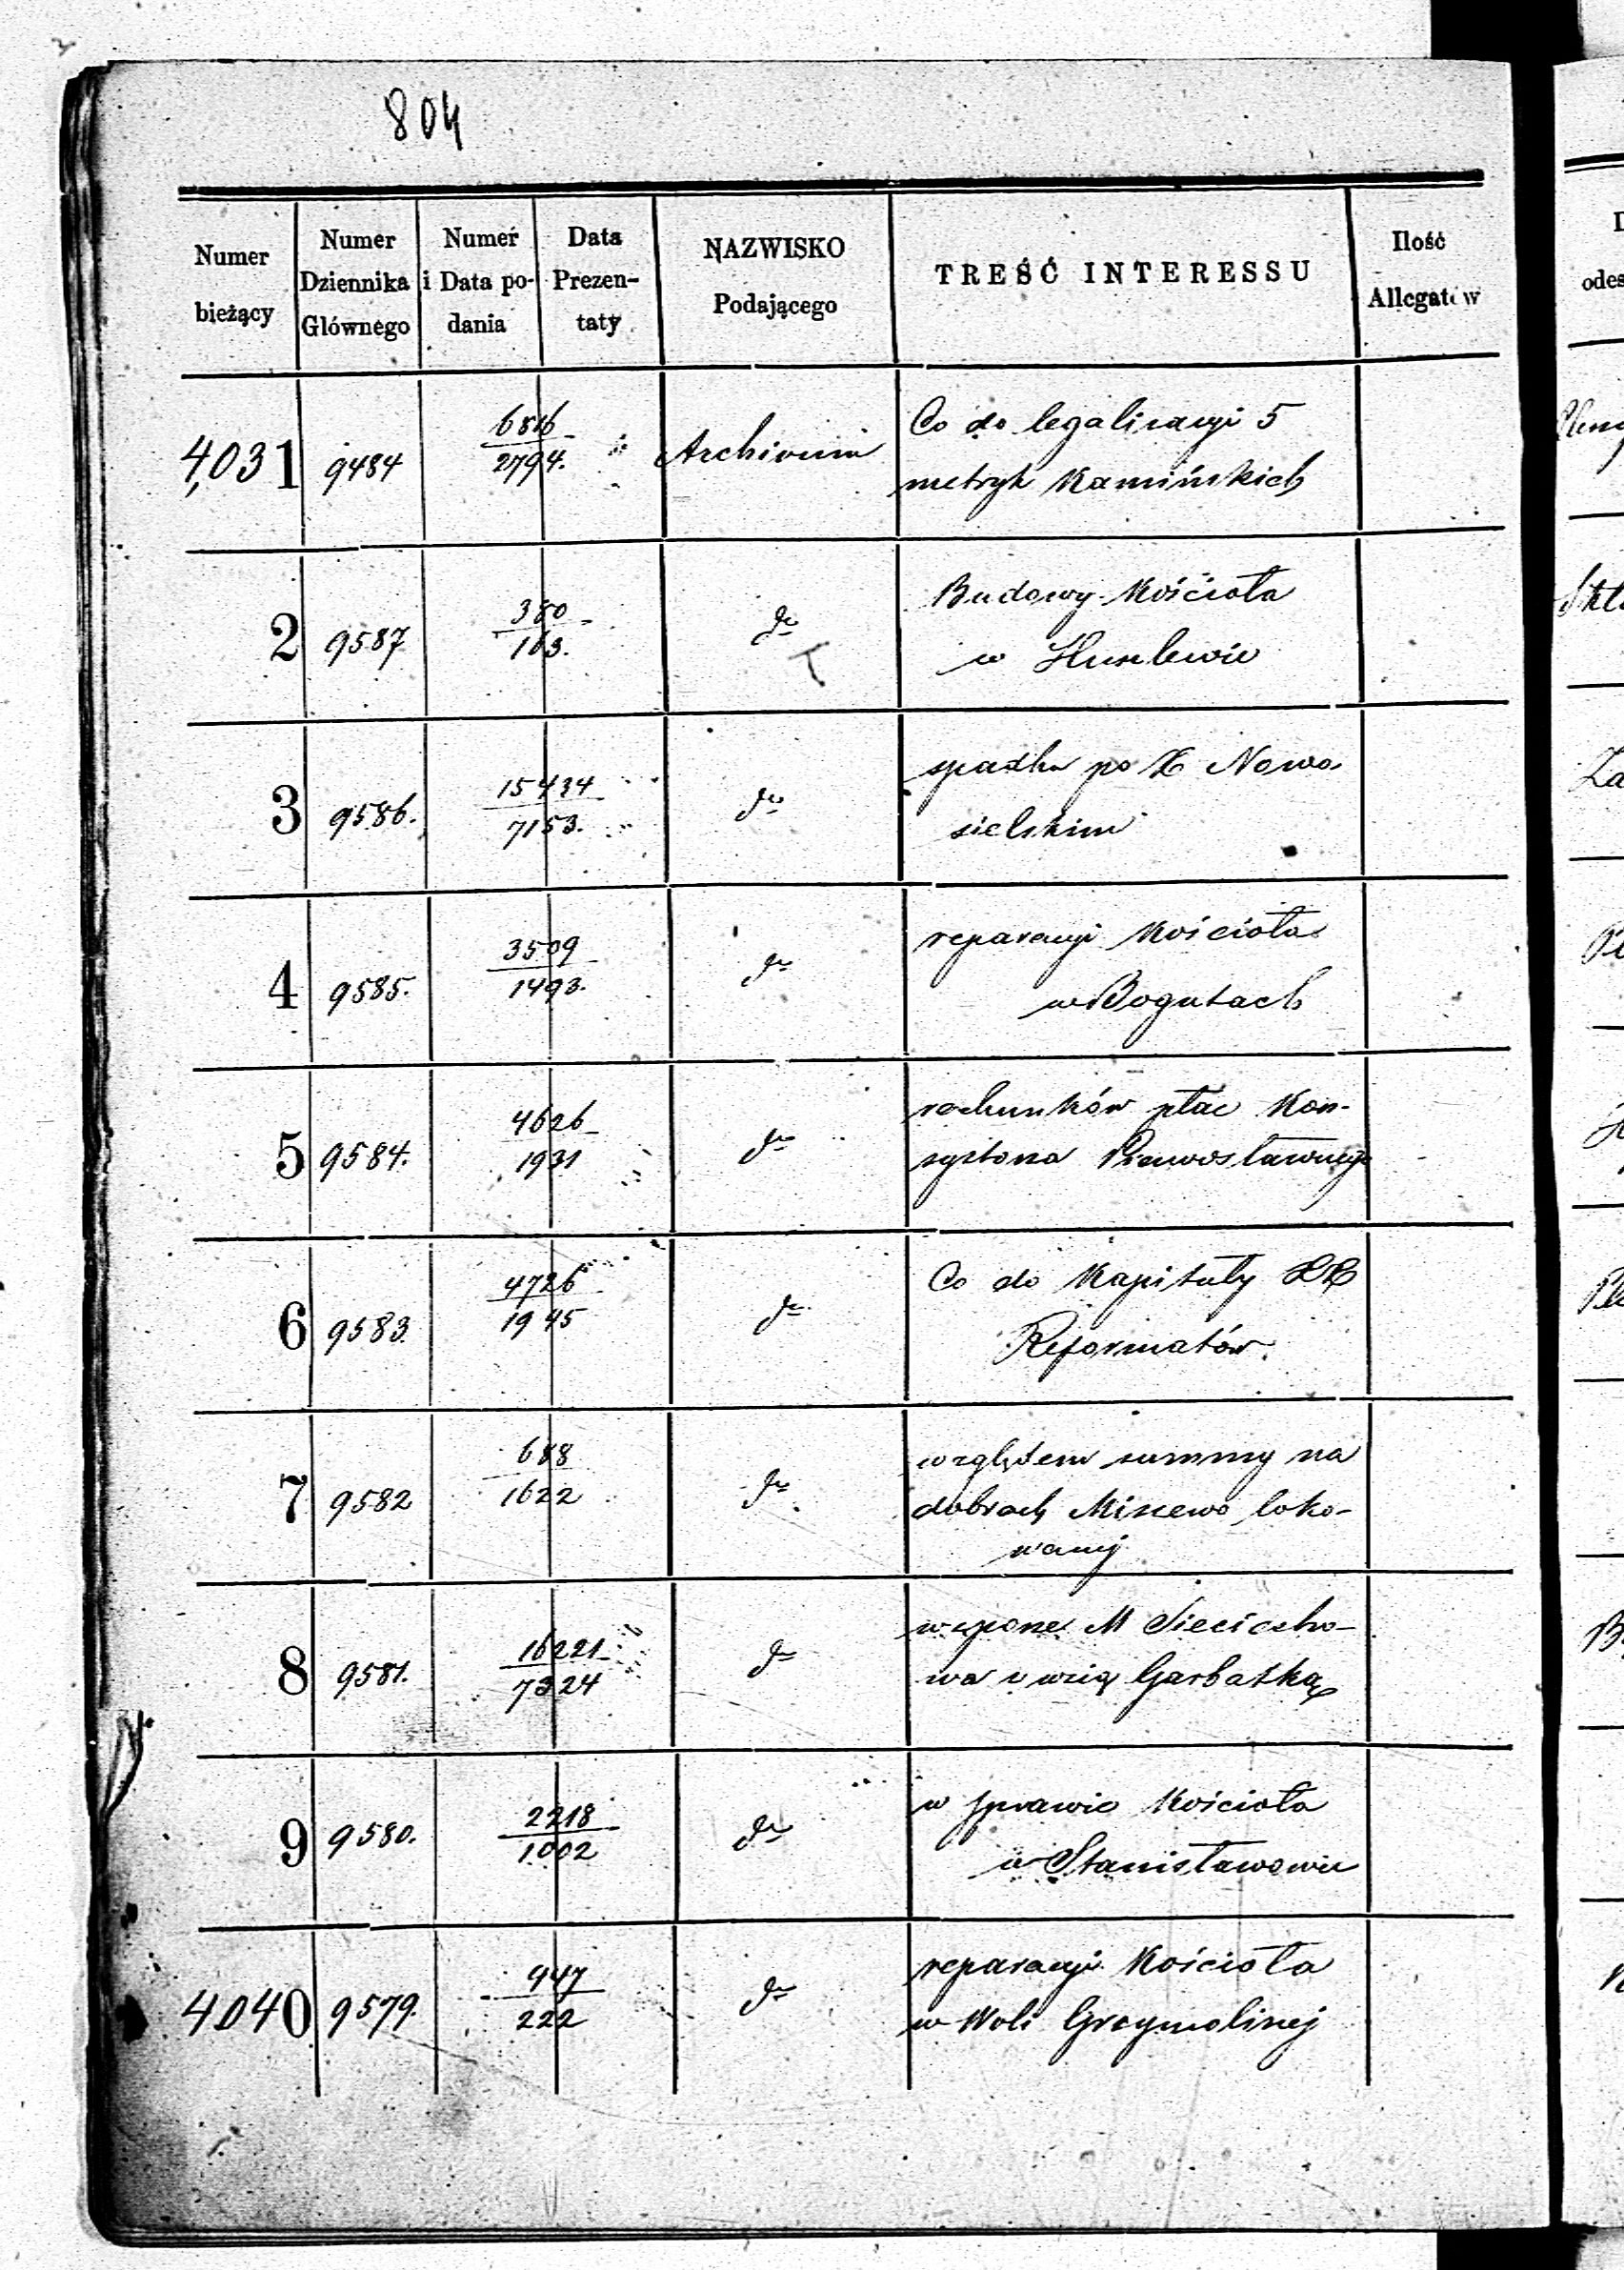 804
Numer bieżący
Numer Dziennika Głównego
Numer i Data podania
Data Prezentaty
NAZWISKO Podającego
TREŚĆ INTERESSU
Ilość Allegatów
4,031 9484 6816 Archivum Co do legalizacyi 5
2794. metryk Kamińskich
2 9587 380 do Budowy Kościoła
163. w Huszlewie
3 9586. 15434 do spadku po X Nowo
7153. sielskim
4 9585. 3509 do reparacyi Kościoła
1493. w Bogutach
5 9584. 4626 do rachunków płac Kon-
1931 systorza Prawosławnego
6 9583. 4726 do Co do Kapituły XX
1945 Reformatów.
7 9582 688 do względem summy na
1622 dobrach Miszewo loko-
wanej
8 9581. 16221 do M Sieciecho-
7324 wa Garbatką
9 9580. 2218 do w sprawie Kościoła
1002 w Stanisławowie
4040 9579. 947 do reparacyi Kościoła
222 w Woli Grzymalinej